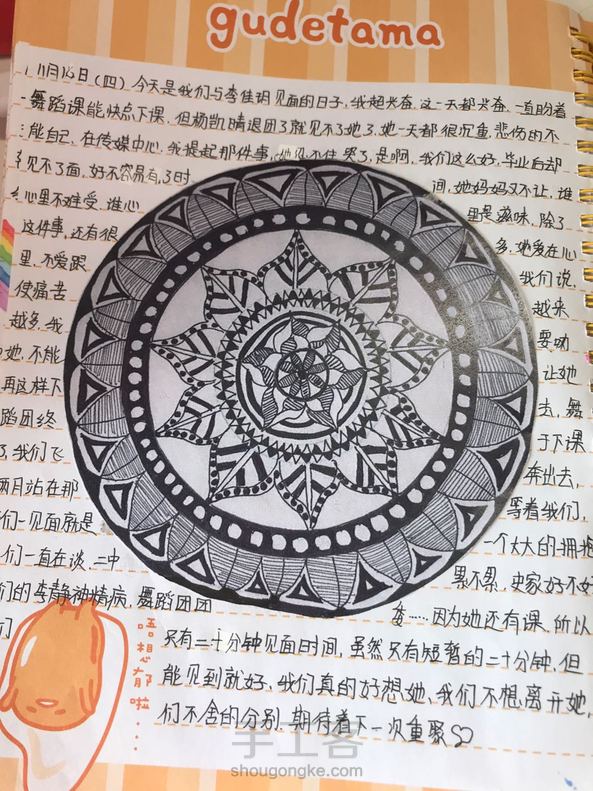 gudetama
11月16日(四) 今天是我们与李佳玥见面的日子,我超兴奋,这一天都兴奋,一直盼着
舞蹈课能快点下课,但杨凯晴退团了就见不了她了,她一天都很沉重,悲伤的不
能自已,在传媒中心,我提起那件事,她忍不住哭了,是啊,我们这么好,毕业后却
见不了面,好不容易有了时 间,她妈妈又不让,谁
心里不难受,谁心 里是滋味,除了
这件事,还有很 多,她爱在心
里,不爱跟 我们说,
使痛苦 越来
越多,我 要劝
她,不能 让她
再这样下 去,舞
蹈团终 于下课
了,我们飞 奔出去,
两日站在那 等着我们,
们一见面就是 一个大大的拥抱
们一直在谈,二中 累不累,史家好不好
们的李静神情病,舞蹈团团
……因为她还有课,所以
们 只有二十分钟见面时间,虽然只有短暂的二十分钟,但
能见到就好,我们真的好想她,我们不想离开她,
们不舍的分别,期待着下一次重聚
唔想郁啦...
手工客
shougongke.com